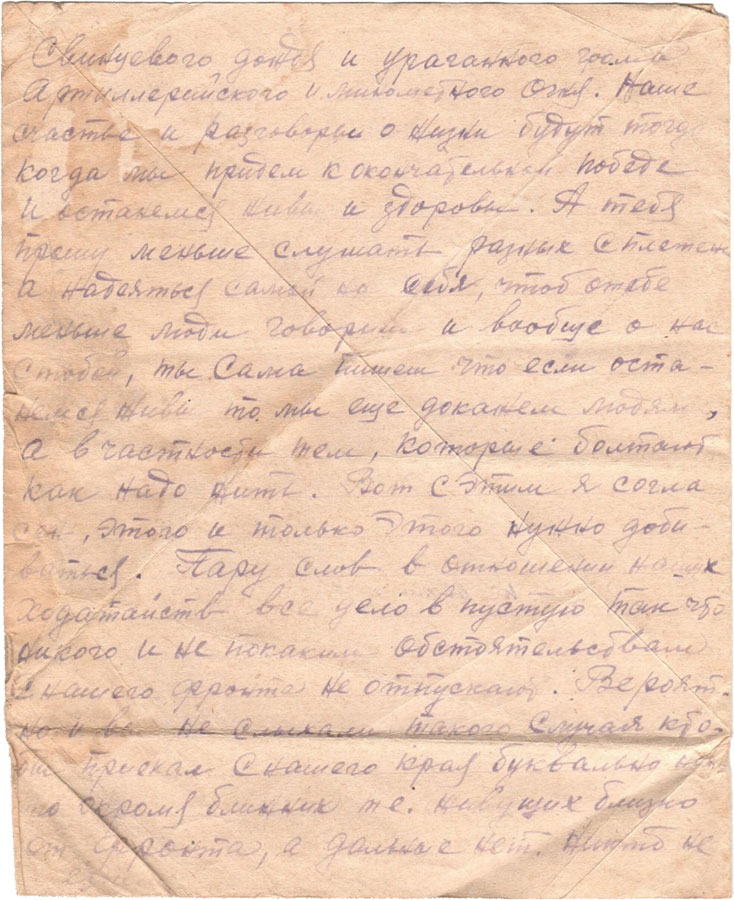 Свинцевого дождя и ураганного грома
Артиллерийского и минометного огня. Наше
счастье и разговоры о жизни будут тогда
когда мы прийдем к окончательной победе
и останемся живы и здоровы. А тебя
прошу меньше слушать разных сплетень
а надеяться самой на себя, чтоб о тебе
меньше люди говорили и вообще о нас
стобой, ты сама пишеш что если оста-
немся живы то мы еще докажем людям,
а в частности тем, которые болтают
как надо жить. Вот с этим я согла
сен, этого и только этого нужно доби-
ваться. Пару слов в отношении наших
ходатайств все дело в пустую так что
никого и не покаким обстоятельствам
с нашего фронта не отпускают. Вероят-
но и вы не слыхали такого случая кто-
приехал с нашего края буквально
окромя ближних те. живущих близко
от фронта, а дальше нет. никто не